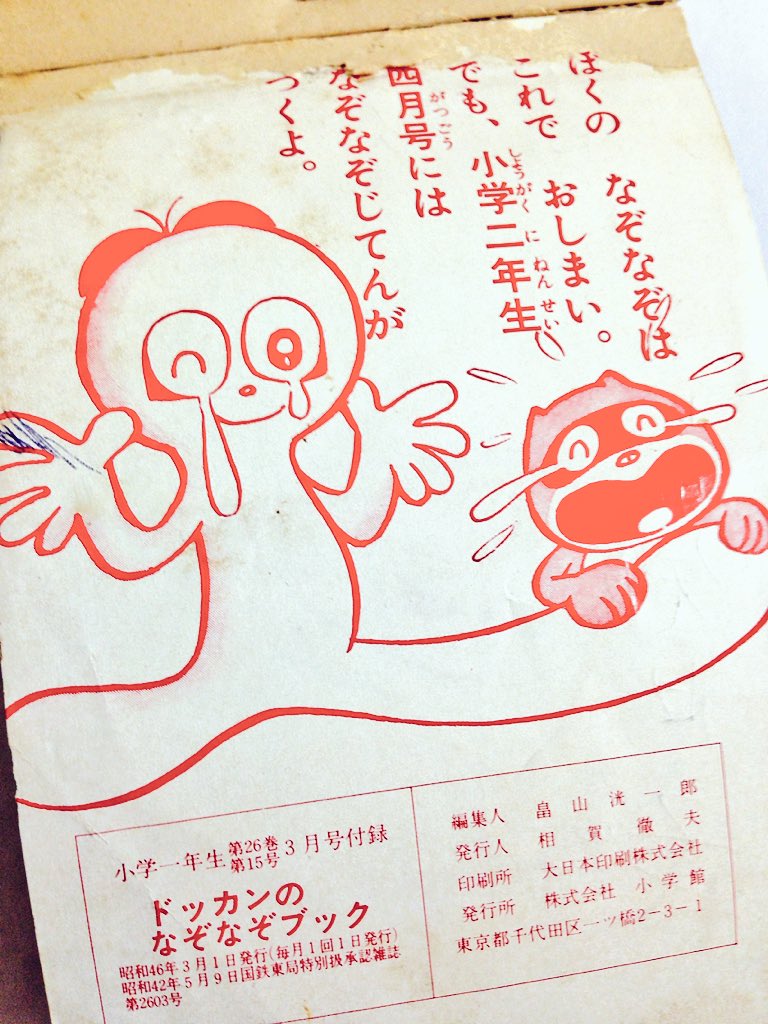 ぼくの なぞなぞは
これで おしまい。
でも、小学二年生
四月号には
なぞなぞじてんが
つくよ。
小学一年生 第26巻第15号 3月号付録
ドッカンの
なぞなぞブック
昭和46年3月1日発行(毎月1回1日発行)
昭和42年5月9日国鉄東局特別扱承認雑誌
第2603号
編集人 畠山洸一郎
発行人 相賀徹夫
印刷所 大日本印刷株式会社
発行所 株式会社 小学館
東京都千代田区一ツ橋2-3-1